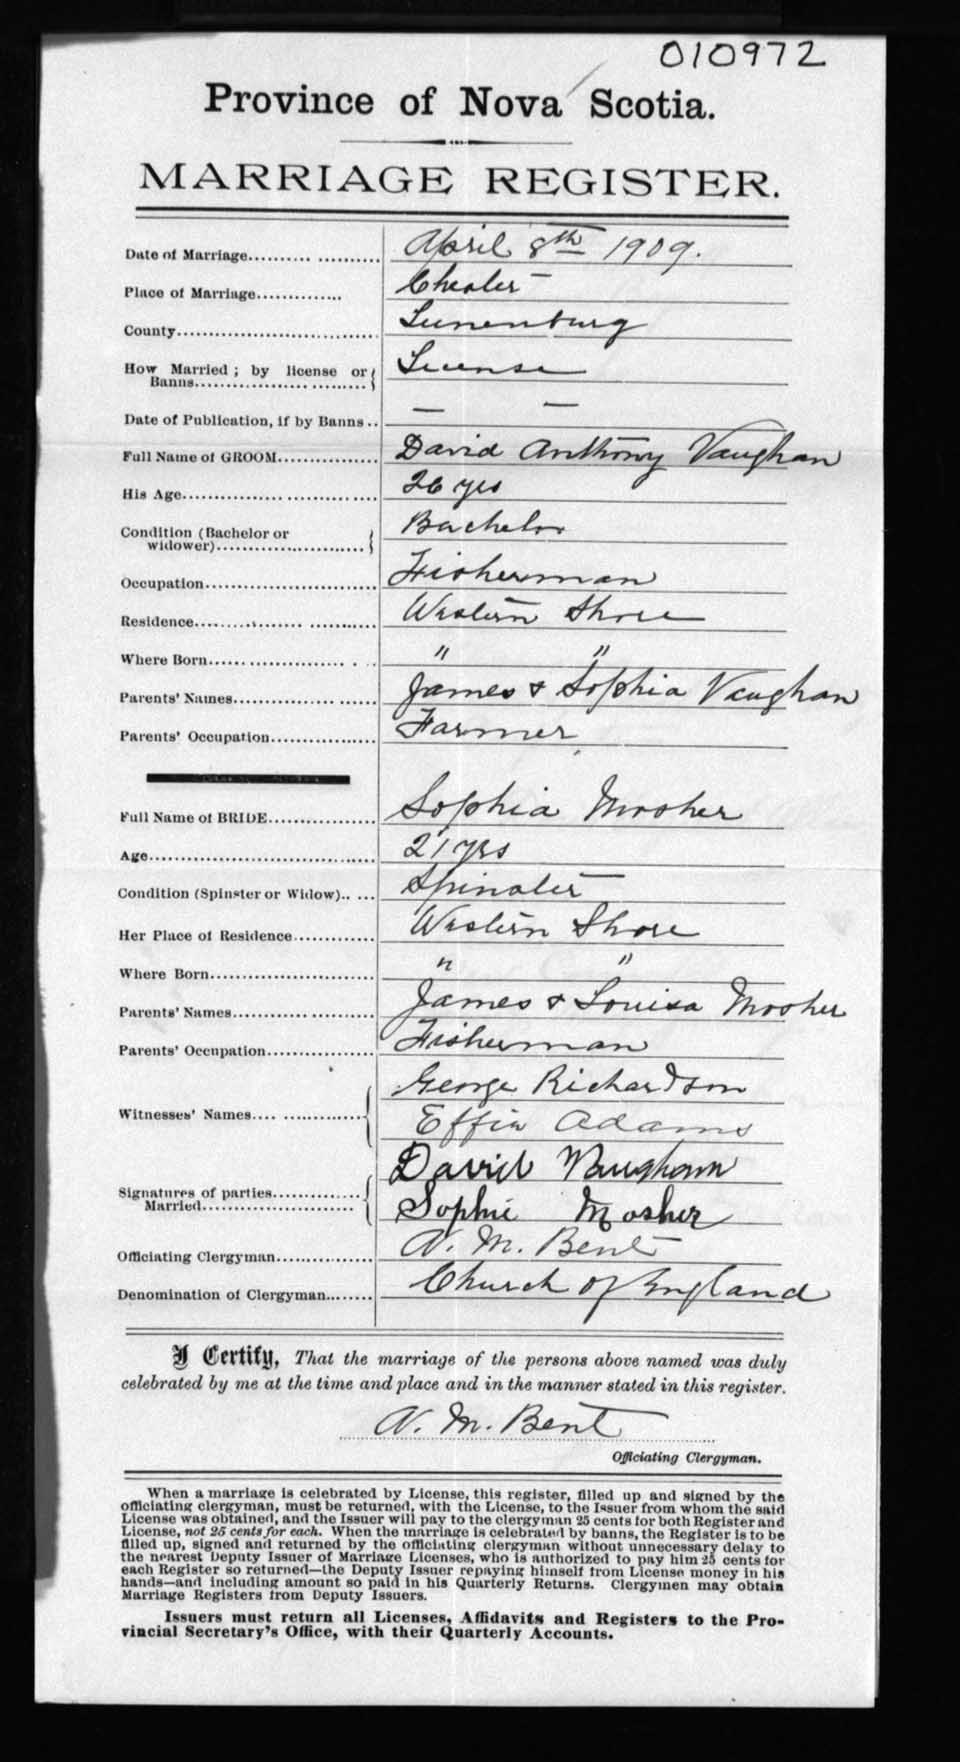 010972
Province of Nova Scotia.
MARRIAGE REGISTER.
Date of Marriage.......... April 8th 1909.
Place of Marriage............. Chester
County............................. Lunenburg
How Married ; by license or Banns.......................... License
Date of Publication, if by Banns .. — —
Full Name of GROOM............... David Anthony Vaughan
His Age............................. 26 yrs
Condition (Bachelor or widower)...................... Bachelor
Occupation......................... Fisherman
Residence........................... Western Shore
Where Born...................... " "
Parents' Names.................... James & Sophia Vaughan
Parents' Occupation................ Farmer
Full Name of BRIDE................ Sophia Mosher
Age................................... 21 yrs
Condition (Spinster or Widow).. ... Spinster
Her Place of Residence............ Western Shore
Where Born........................ " "
Parents' Names.................... James & Louisa Mosher
Parents' Occupation................ Fisherman
Witnesses' Names.... ............. George Richardson
Effie Adams
Signatures of parties Married............. David Vaughan
Sophie Mosher
Officiating Clergyman.............. A. M. Bent
Denomination of Clergyman....... Church of England
I Certify, That the marriage of the persons above named was duly
celebrated by me at the time and place and in the manner stated in this register.
A. M. Bent
Officiating Clergyman.
When a marriage is celebrated by License, this register, filled up and signed by the
officiating clergyman, must be returned, with the License, to the Issuer from whom the said
License was obtained, and the Issuer will pay to the clergyman 25 cents for both Register and
License, not 25 cents for each. When the marriage is celebrated by banns, the Register is to be
filled up, signed and returned by the officiating clergyman without unnecessary delay to
the nearest Deputy Issuer of Marriage Licenses, who is authorized to pay him 25 cents for
each Register so returned—the Deputy Issuer repaying himself from License money in his
hands—and including amount so paid in his Quarterly Returns. Clergymen may obtain
Marriage Registers from Deputy Issuers.
Issuers must return all Licenses, Affidavits and Registers to the Pro-
vincial Secretary's Office, with their Quarterly Accounts.